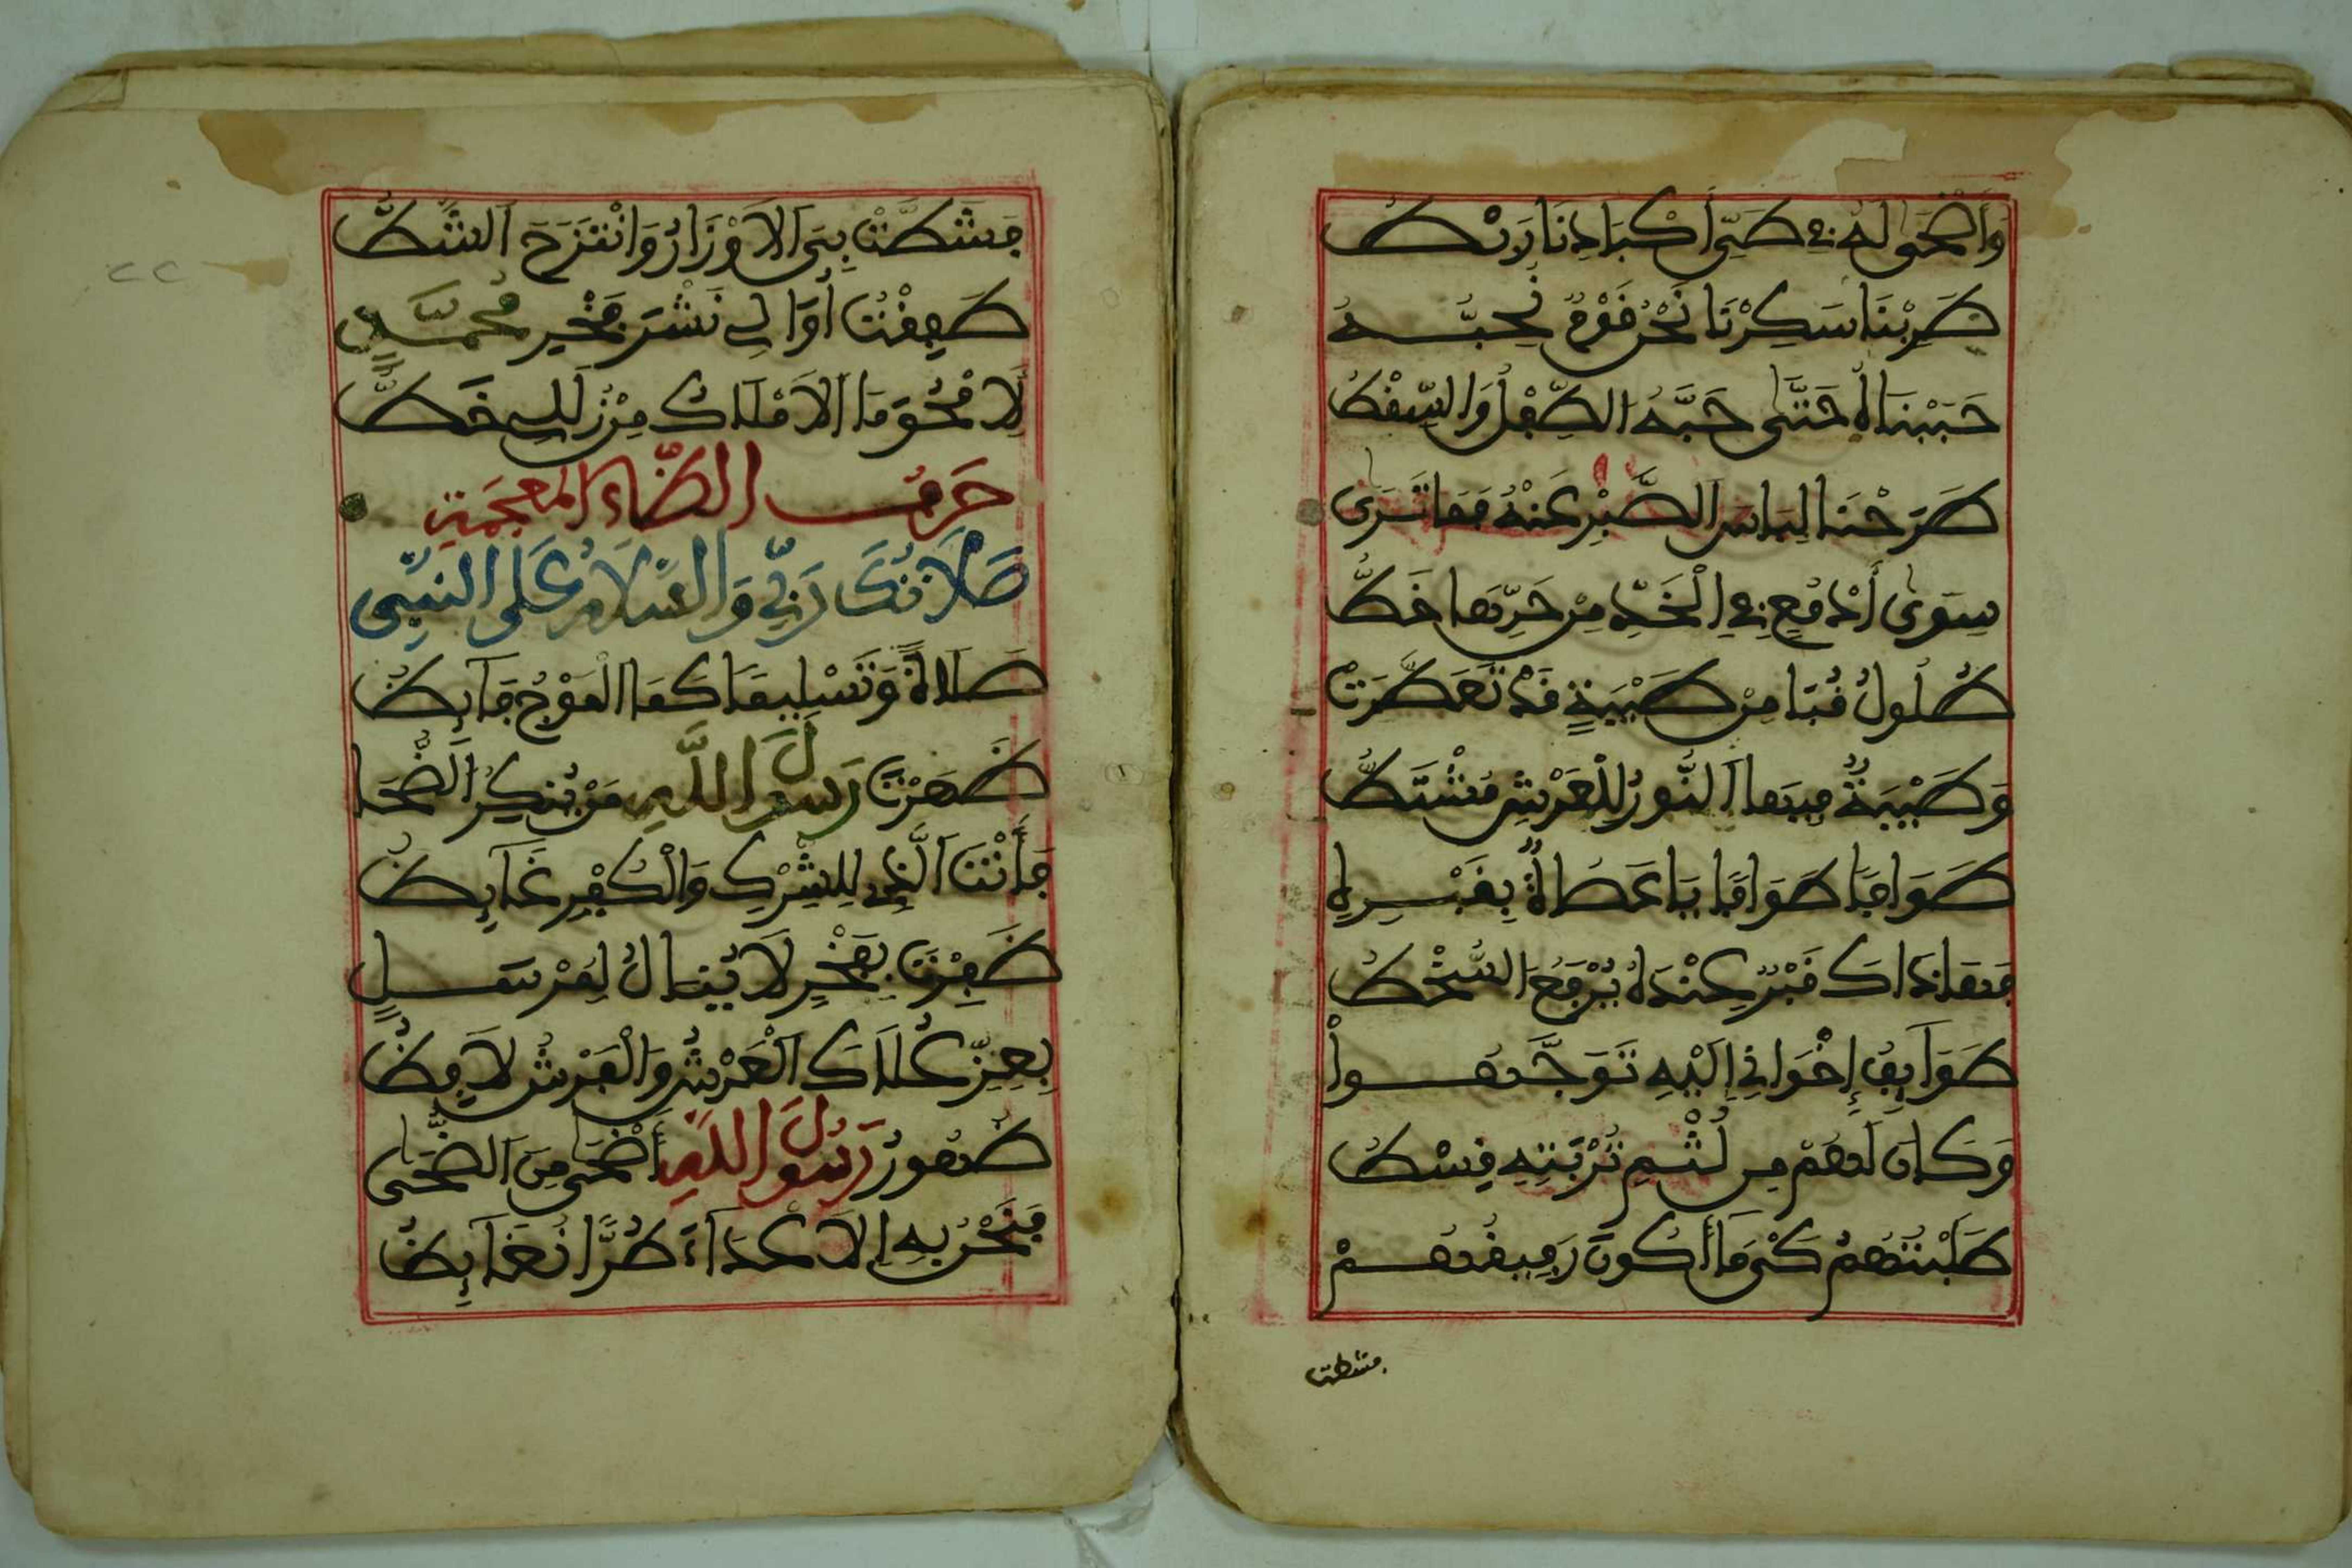 وَأَضْحَى لَهُ فِي طَيِّ أَكْبَادِنَا رَبْطُ
طَرِبْنَا سَكِرْنَا نَحْنُ قَوْمٌ نُحِبُّهُ
حَبَبْنَاهُ حَتَّى حَبَّهُ الطِّفْلُ وَالسِّقْطُ
طَرَحْنَا لِبَاسَ الصَّبْرِ عَنْهُ فَمَا تَرَى
سِوَى أَدْمُعٍ فِي الْخَدِّ مِنْ حَرِّهَا خَطُّ
طُلُولُ قُبَا مِنْ طَيْبَةٍ قَدْ تَعَطَّرَتْ
وَطَيْبَةُ فِيهَا النُّورُ لِلْعَرْشِ مُشْتَطُّ
طَوَافًا طَوَافًا يَا عُصَاةُ بِقَبْرِهِ
فَهَاذَاكَ قَبْرٌ عِنْدَهُ يُرْفَعُ السُّخْطُ
طَوَائِفُ إِخْوَانِي إِلَيْهِ تَوَجَّهُوا
وَكَانَ لَهُمْ مِن لَثْمِ تُرْبَتِهِ قِسْطُ
طَلَبْتُهُمْ كَيْ مَا أَكُونَ رَفِيقَهُمْ
فشطت
فَشَطَّتْ بِيَ الْأَوْزَارُ وَانْتَزَحَ الشَّطُّ
طَفِقْتُ أُوَالِي نَشْرَ فَخْرِ مُحَمَّدٍ
لِأَمْحُوَ مَا الْأَمْلَاكُ مِنْ زَلَلِي خَطُّ
حَرْفُ الظَّاءِ الْمُعْجَمَةِ
صَلَاتُكَ رَبِّي وَالسَّلَامُ عَلَى النَّبِيِّ
صَلَاةً وَتَسْلِيمًا كَمَا الْمَوْجُ فَائِظُ
ظَهَرْتَ رَسُولَ اللَّهِ مَنْ يُنْكِرُ الضُّحَا
فَأَنْتَ الَّذِي لِلشِّرْكِ وَالْكُفْرِ غَائِظُ
ظَفِرْتَ بِفَخْرٍ لَا يُنَالُ لِمُرْسَلٍ
بِعِزِّ عُلَاكَ الْعَرْشُ وَالْفَرْشُ لَافِظُ
ظُهُورُ رَسُولِ اللَّهِ أَضْحَى مِنَ الضُّحَى
فَنَحْنُ بِهِ الْأَعْدَاءَ طُرًّا نُغَائِظُ